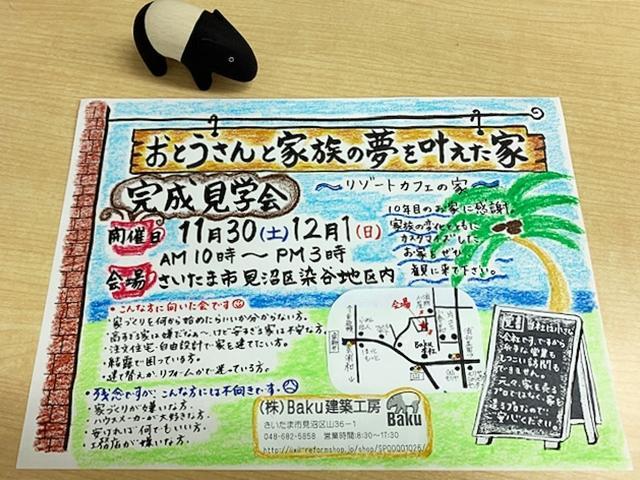 おとうさんと家族の夢を叶えた家
完成見学会
〜リゾートカフェの家〜
開催日 11月30(土) 12月1(日)
AM10時〜PM3時
会場 さいたま市見沼区染谷地区内
10年目のお家に感謝。
家族の変化とともに
カスタマイズした
お家をぜひ
観に来て下さい。
・こんな方に向いた会です
・家づくりを何から始めたらいいか分からない。
・高すぎる家は嫌だなぁ〜、けど安すぎる家は不安な方。
・注文住宅・自由設計で家を建てたい方。
・結露で困っている方。
・建て替えか、リフォームかで迷っている方。
・残念ですが、こんな方には不向きです
・家づくりが嫌いな方。
・ハウスメーカーが大好きな方。
・安ければ何でもいい方。
・工務店が嫌いな方。
会場
Baku
(株)Baku建築工房
Baku
さいたま市見沼区山36-1
048-682-5858 営業時間:8:30〜17:30
会社です。ですから
しつこい訪問も
できません。
元々、家を売る
プロではなく、家を